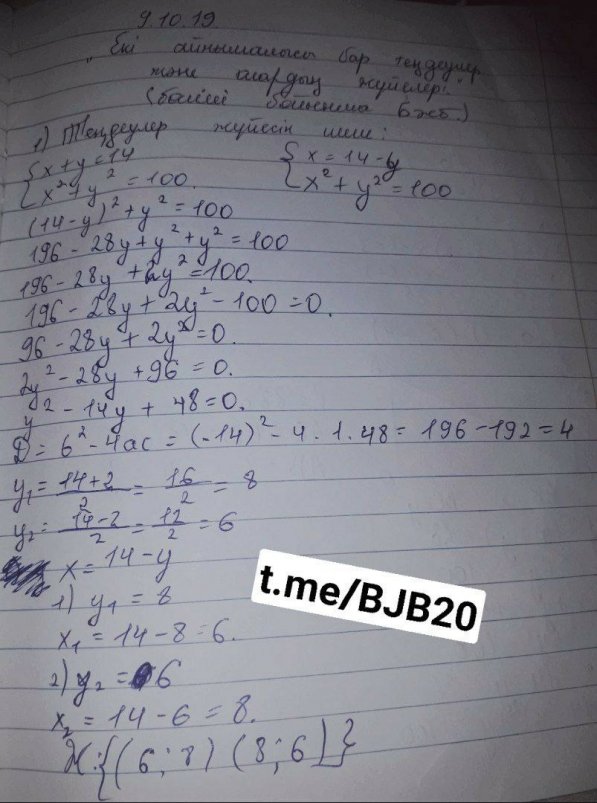 9.10.19
"Екі айнымалысы бар теңдеулер
және олардың жүйелері."
(бөлімі бойынша БЖБ.)
1) Теңдеулер жүйесін шеш:
{x+y=14 {x=14-y
{x²+y²=100. {x²+y²=100
(14-y)²+y²=100
196-28y+y²+y²=100
196-28y+2y²=100.
196-28y+2y²-100=0.
96-28y+2y²=0.
2y²-28y+96=0.
y²-14y+48=0.
D=b²-4ac=(-14)²-4·1·48=196-192=4
y₁=14+2/2=16/2=8
y₂=14-2/2=12/2=6
x=14-y
1) y₁=8
x₁=14-8=6.
2) y₂=6
x₂=14-6=8.
Ж:{(6;8) (8;6)}
t.me/BJB20